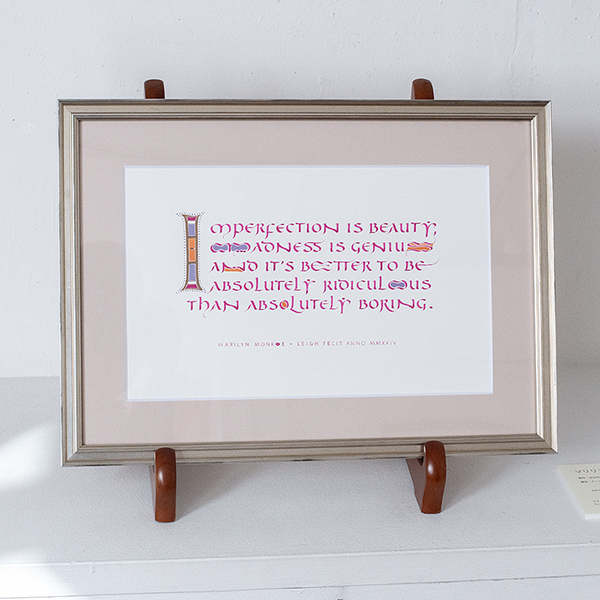 IMPERFECTION IS BEAUTY;
MADNESS IS GENIUS
AND IT'S BETTER TO BE
ABSOLUTELY RIDICULOUS
THAN ABSOLUTELY BORING.
MARILYN MONROE • LEIGH FECIT ANNO MMXXIV